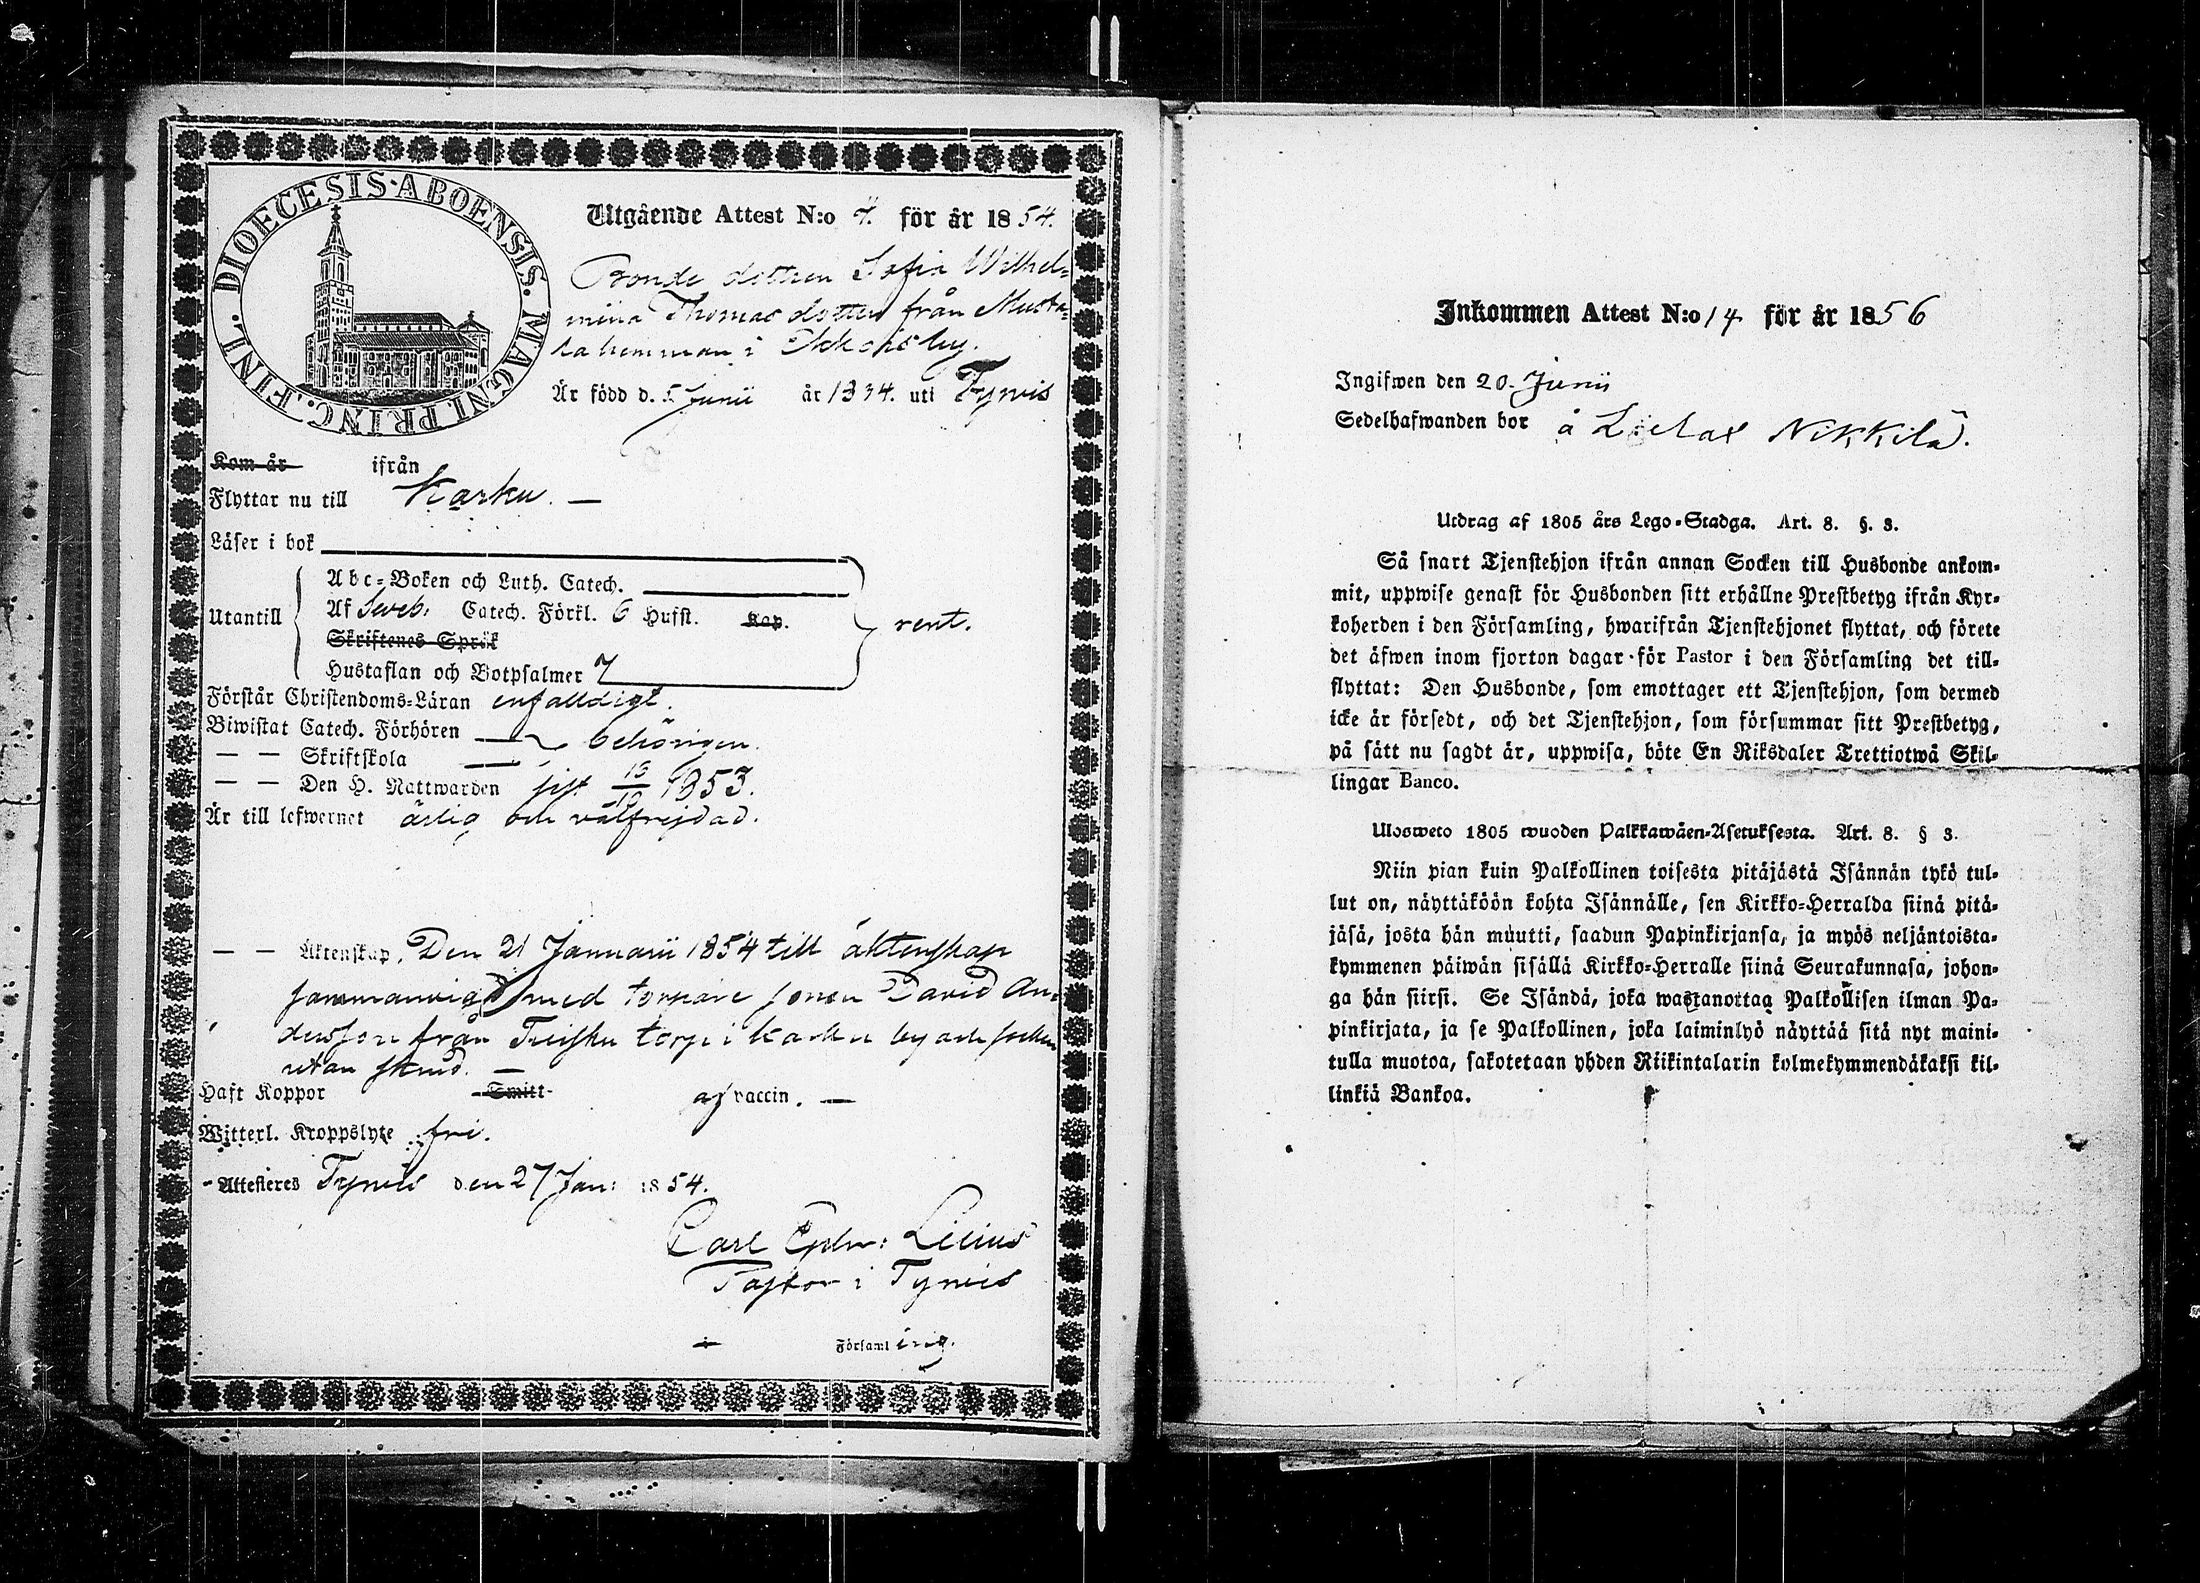 DIOECESIS · ABOENSIS. MAGNI. PRINC. FINL.
Utgående Attest N:o 4. för år 1854.
Bonde dottren Sofia Wilhel=
mina Thomasdotter från Musta=
ta hemman i by.
Är född d. 5 Junii år 1834. uti Tyrvis
Kom år ifrån
Flyttar nu till Karku. —
Läser i bok
Utantill
Abc=Boken och Luth. Catech.
Af Sveb: Catech. Förkl. 6 Hufst. Kap. rent.
Skriftenes Språk
Hustaflan och Botpsalmer 7
Förstår Christendoms=Läran enfalldigt.
Biwistat Catech. Förhören — behörigen.
— — Skriftskola —
— — Den H. Nattwarden sist 13/10 1853.
Är till lefwernet ärlig och välfrejdad.
— — Äktenskap. Den 21 Januarii 1854 till äktenskap
sammanvigd med torpare sonen David An=
dersson från torp i Karku by och socken
utan stånd. —
Haft Koppor Smitt af vaccin. —
Witterl. Kroppslyte fri.
Attesteres Tyrvis den 27 Jan: 1854.
Carl Edv: Lilius
Pastor i Tyrvis
Församling.
Inkommen Attest N:o 14 för år 1856
Ingifwen den 20 Junii
Sedelhafwanden bor å Nikkilä.
Utdrag af 1805 års Lego=Stadga. Art. 8. §. 3.
Så snart Tjenstehjon ifrån annan Socken till Husbonde ankom=
mit, uppwise genast för Husbonden sitt erhållne Prestbetyg ifrån Kyr=
koherden i den Församling, hwarifrån Tjenstehjonet flyttat, och förete
det äfwen inom fjorton dagar för Pastor i den Församling det till=
flyttat: Den Husbonde, som emottager ett Tjenstehjon, som dermed
icke är försedt, och det Tjenstehjon, som försummar sitt Prestbetyg,
på sätt nu sagdt är, uppwisa, böte En Riksdaler Trettiotwå Skil=
lingar Banco.
Ulosweto 1805 wuoden Palkkawäen=Asetuksesta. Art. 8. § 3.
Niin pian kuin Palkollinen toisesta pitäjästä Isännän tykö tul=
lut on, näyttäköön kohta Isännälle, sen Kirkko=Herralda siinä pitä=
jäsä, josta hän muutti, saadun Papinkirjansa, ja myös neljäntoista=
kymmenen päiwän sisällä Kirkko=Herralle siinä Seurakunnasa, johon=
ga hän siirsi. Se Isändä, joka wastanottaa Palkollisen ilman Pa=
pinkirjata, ja se Palkollinen, joka laiminlyö näyttää sitä nyt maini=
tulla muotoa, sakotetaan yhden Riikintalarin kolmekymmendäkaksi kil=
linkiä Bankoa.